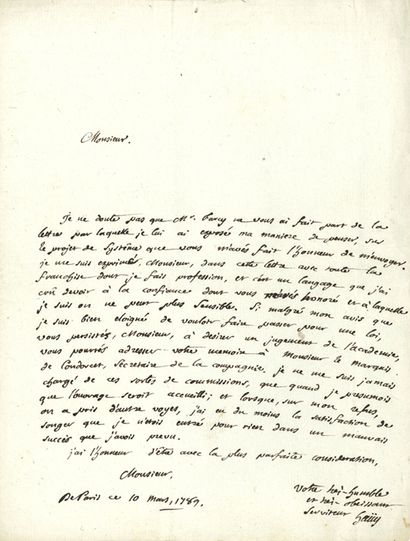 Monsieur.
je ne doute pas que Mr. Parcy ne vous ai fait part de la
lettre par laquelle je lui ai exposé ma maniere de penser, sur
le projet de systême que vous m'avés fait l'honneur de m'envoyer.
je me suis exprimé, Monsieur, dans cette lettre avec toute la
franchise dont je fais profession, et c'est un langage que j'ai
cru devoir à la confiance dont vous m'avés honoré et à laquelle
je suis on ne peut plus sensible. Si malgré mon avis que
je suis bien éloigné de vouloir faire passer pour une loi,
vous persistés, Monsieur, à désirer un jugement de l'académie,
vous pourrés adresser votre memoire à Monsieur le marquis
de Condorcet, Secretaire de la compagnie. je ne me suis jamais
chargé de ces sortes de commissions, que quand je presumois
que l'ouvrage seroit accueilli; et lorsque, sur mon refus,
on a pris d'autre voyes, j'ai eu du moins la satisfaction de
songer que je n'étois entré pour rien dans un mauvais
succès que j'avois prevu.
j'ai l'honneur d'etre avec la plus parfaite consideration,
Monsieur,
De Paris ce 10 mars, 1789.
votre très-humble
et très-obeissant
serviteur haüy